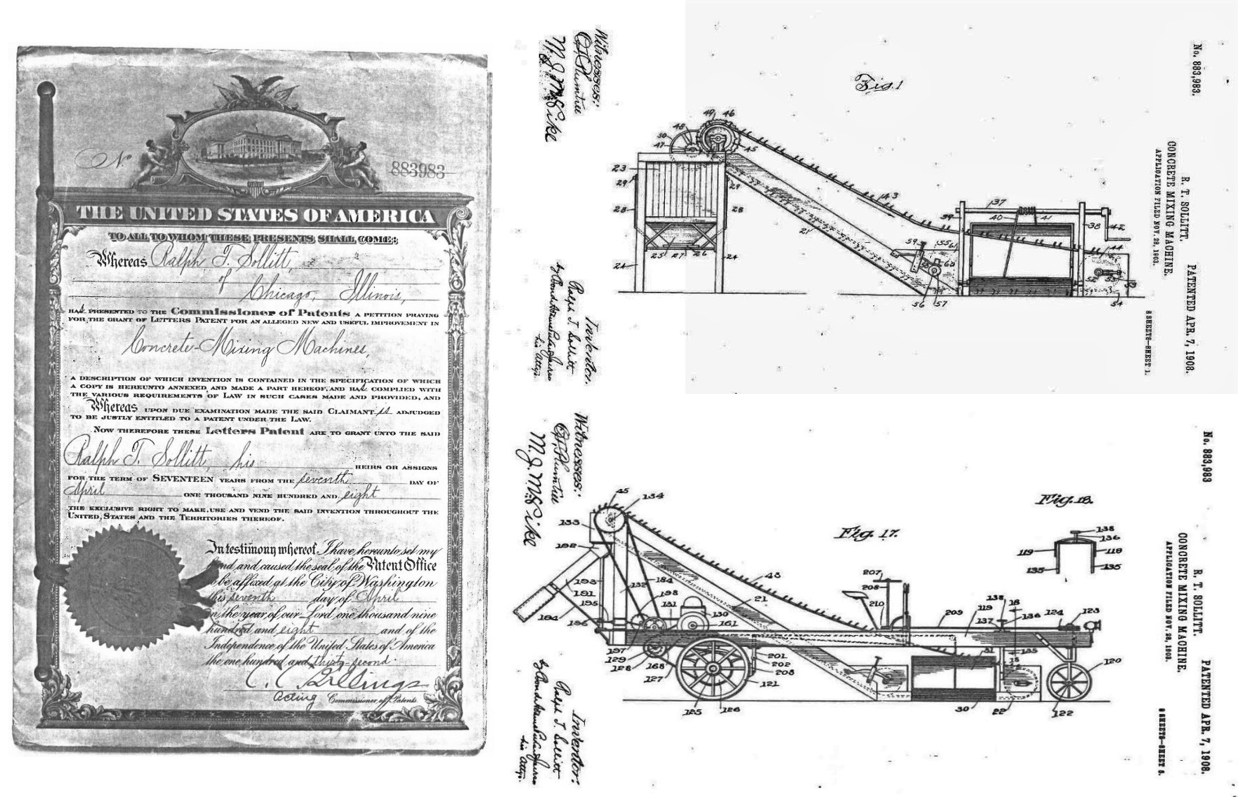 No
883983
THE UNITED STATES OF AMERICA
TO ALL TO WHOM THESE PRESENTS SHALL COME:
Whereas Ralph T. Sollitt,
of
Chicago, Illinois,
HAS PRESENTED TO THE Commissioner of Patents A PETITION PRAYING
FOR THE GRANT OF LETTERS PATENT FOR AN ALLEGED NEW AND USEFUL IMPROVEMENT IN
Concrete-Mixing Machines,
A DESCRIPTION OF WHICH INVENTION IS CONTAINED IN THE SPECIFICATION OF WHICH
A COPY IS HEREUNTO ANNEXED AND MADE A PART HEREOF, AND HAS COMPLIED WITH
THE VARIOUS REQUIREMENTS OF LAW IN SUCH CASES MADE AND PROVIDED, AND
Whereas UPON DUE EXAMINATION MADE THE SAID CLAIMANT is ADJUDGED
TO BE JUSTLY ENTITLED TO A PATENT UNDER THE LAW.
NOW THEREFORE THESE Letters Patent ARE TO GRANT UNTO THE SAID
Ralph T. Sollitt, his HEIRS OR ASSIGNS
FOR THE TERM OF SEVENTEEN YEARS FROM THE seventh DAY OF
April ONE THOUSAND NINE HUNDRED AND eight
THE EXCLUSIVE RIGHT TO MAKE, USE AND VEND THE SAID INVENTION THROUGHOUT THE
UNITED STATES AND THE TERRITORIES THEREOF.
In testimony whereof I have hereunto set my
hand and caused the seal of the Patent Office
to be affixed at the City of Washington
this seventh day of April
in the year of our Lord one thousand nine
hundred and eight and of the
Independence of the United States of America
the one hundred and thirty-second.
C. C. Billings
Acting Commissioner of Patents
No. 883,983.
R. T. SOLLITT.
CONCRETE MIXING MACHINE.
APPLICATION FILED NOV. 29, 1901.
PATENTED APR. 7, 1908.
SHEETS—SHEET 1.
Fig. 1
49 46
48
36
47
45
23
29 29
28 28
25 27 26
24 24
21
43
59 55 61
60
56 57
39
37
40 41
38
42
44
52 53
54
Witnesses:
Inventor:
Ralph T. Sollitt
No. 883,983
R. T. SOLLITT.
CONCRETE MIXING MACHINE.
PATENTED APR. 7, 1908.
Fig. 17.
Fig. 18.
138
136
119 118
135 135
45 134
133
192
193
191
195
194
196
184
132
198
131
130
161
197
129
128
168
127
125 126
121
201
202
203
43
21
207
208
210
209
119
137
138 18
136
124
123
31
120
30
22
122
Witnesses:
Inventor:
Ralph T. Sollitt